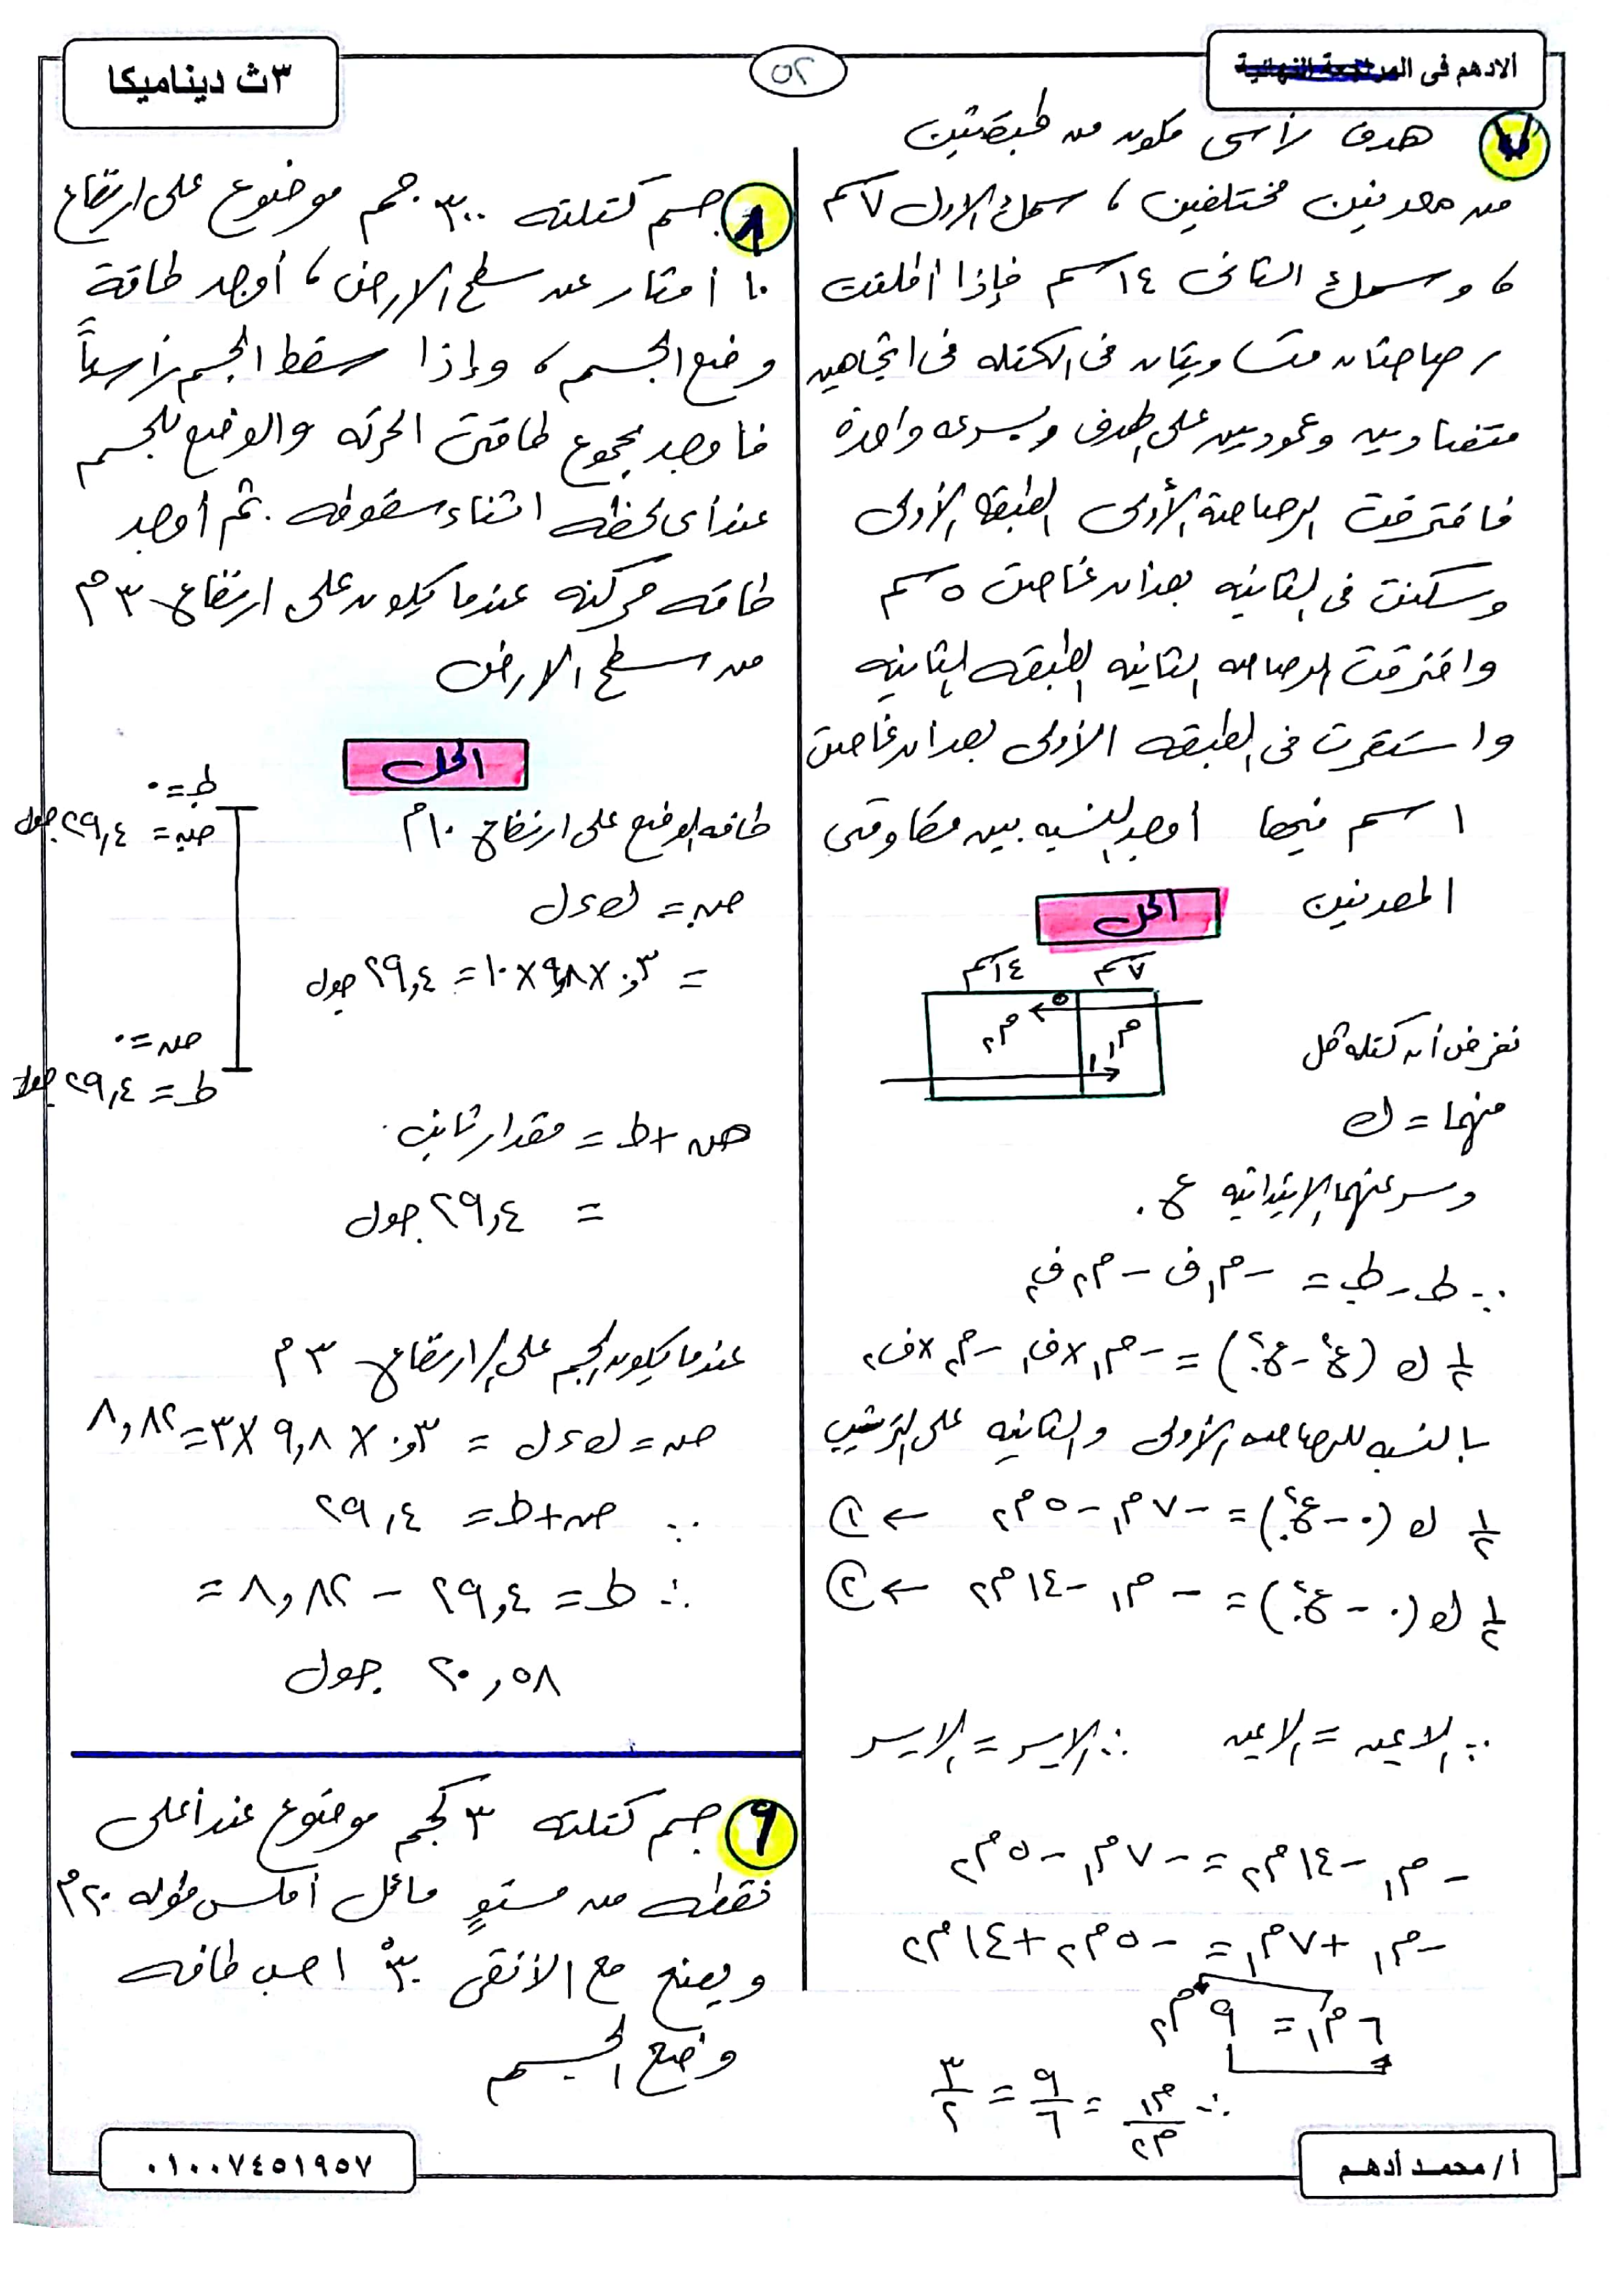 الادهم فى المراجعة النهائية
٥٢
٣ث ديناميكا
٧ هدف رأسى مكون من طبقتين
من معدنين مختلفين ، سمك الاول ٧سم
، وسمك الثانى ١٤سم فإذا اطلقت
رصاصتان متساويتان فى الكتله فى اتجاهين
متضادين وعموديين على الهدف وبسرعه واحدة
فاخترقت الرصاصة الأولى الطبقه الأولى
وسكنت فى الثانيه بعد ان غاصت ٥سم
واخترقت الرصاصه الثانيه الطبقه الثانيه
واستقرت فى الطبقه الأولى بعد ان غاصت
١ سم فيها أوجد النسبه بين مقاومتى
المعدنين
الحل
١٤سم ٧سم
م٢ ٥ م١ ١
نفرض أن كتلة كل
منهما = ك
وسرعتهما الابتدائيه ع.
∵ ط - ط. = - م١ ف١ - م٢ ف٢
١/٢ ك (ع٢ - ع.٢) = - م١ × ف١ - م٢ × ف٢
بالنسبه للرصاصه الأولى والثانيه على الترتيب
١/٢ ك (٠ - ع.٢) = - ٧ م١ - ٥ م٢ ← ①
١/٢ ك (٠ - ع.٢) = - م١ - ١٤ م٢ ← ②
∵ الايمن = الايمن ∴ الايسر = الايسر
- م١ - ١٤ م٢ = - ٧ م١ - ٥ م٢
- م١ + ٧ م١ = - ٥ م٢ + ١٤ م٢
٦ م١ = ٩ م٢
∴ م١/م٢ = ٩/٦ = ٣/٢
٨ جسم كتلته ٣٠٠ جم موضوع على ارتفاع
١٠ أمتار عن سطح الارض ، أوجد طاقة
وضع الجسم ، وإذا سقط الجسم رأسياً
فاوجد مجموع طاقتى الحركه والوضع للجسم
عند أى لحظه اثناء سقوطه . ثم أوجد
طاقه حركته عندما يكون على ارتفاع ٣م
من سطح الارض
الحل
ط. = ٠
ص. = ٢٩,٤ جول
ص = ٠
ط = ٢٩,٤ جول
طاقه الوضع على ارتفاع ١٠م
ص. = ك ء ل
= ٠,٣ × ٩,٨ × ١٠ = ٢٩,٤ جول
ص + ط = مقدار ثابت
= ٢٩,٤ جول
عندما يكون الجسم على ارتفاع ٣م
ص = ك ء ل = ٠,٣ × ٩,٨ × ٣ = ٨,٨٢
∵ ص + ط = ٢٩,٤
∴ ط = ٢٩,٤ - ٨,٨٢ =
٢٠,٥٨ جول
٩ جسم كتلته ٣ كجم موضوع عند أعلى
نقطه من مستوٍ مائل أملس طوله ٢٠م
ويصنع مع الأفقى ٣٠° احسب طاقه
وضع الجسم
أ/ محمد أدهم
٠١٠٠٧٤٥١٩٥٧